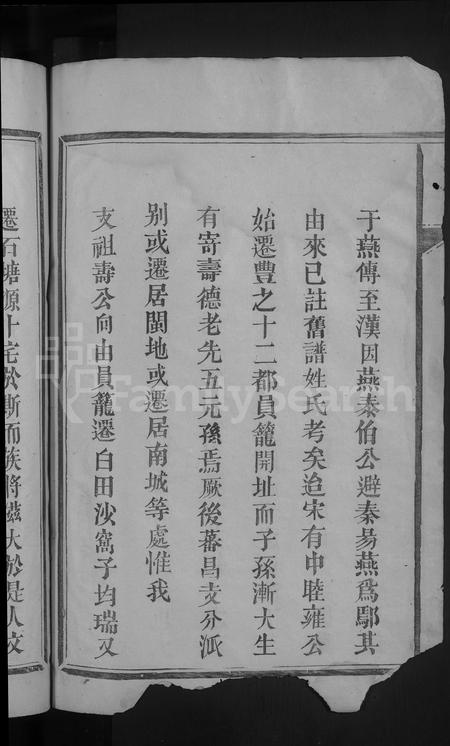 于燕傳至漢因燕泰伯公避秦昜燕爲鄢其
由來已註舊譜姓氏考矣迨宋有中睦雍公
始遷豐之十二都員籠開址而子孫漸大生
有寄壽德老先五元孫焉厥後蕃昌支分派
别或遷居閩地或遷居南城等處惟我
支祖壽公向由員籠遷白田沙窩子均瑞又
遷石塘源卜宅於斯而族將茲大於是人文
FamilySearch